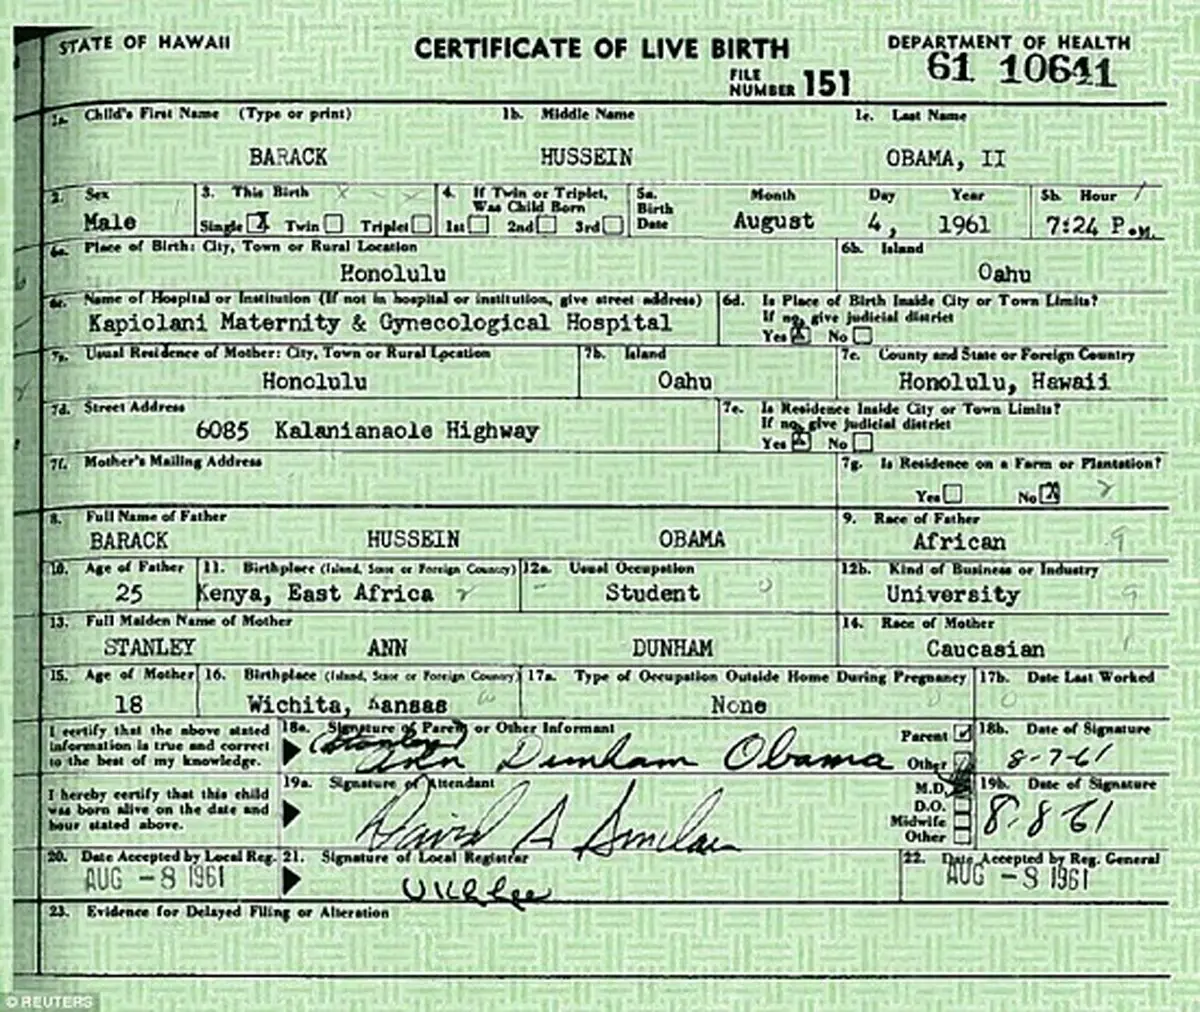 STATE OF HAWAII CERTIFICATE OF LIVE BIRTH DEPARTMENT OF HEALTH
FILE NUMBER 151 61 10641
1a. Child's First Name (Type or print) 1b. Middle Name 1c. Last Name
BARACK HUSSEIN OBAMA, II
2. Sex 3. This Birth 4. If Twin or Triplet, Was Child Born 5a. Birth Date Month Day Year 5b. Hour
Male Single X Twin Triplet 1st 2nd 3rd August 4, 1961 7:24 P.M.
6a. Place of Birth: City, Town or Rural Location 6b. Island
Honolulu Oahu
6c. Name of Hospital or Institution (If not in hospital or institution, give street address) 6d. Is Place of Birth Inside City or Town Limits?
If no, give judicial district
Kapiolani Maternity & Gynecological Hospital Yes X No
7a. Usual Residence of Mother: City, Town or Rural Location 7b. Island 7c. County and State or Foreign Country
Honolulu Oahu Honolulu, Hawaii
7d. Street Address 7e. Is Residence Inside City or Town Limits?
If no, give judicial district
6085 Kalanianaole Highway Yes X No
7f. Mother's Mailing Address 7g. Is Residence on a Farm or Plantation?
Yes No X
8. Full Name of Father 9. Race of Father
BARACK HUSSEIN OBAMA African 9
10. Age of Father 11. Birthplace (Island, State or Foreign Country) 12a. Usual Occupation 12b. Kind of Business or Industry
25 Kenya, East Africa Student University 9
13. Full Maiden Name of Mother 14. Race of Mother
STANLEY ANN DUNHAM Caucasian 1
15. Age of Mother 16. Birthplace (Island, State or Foreign Country) 17a. Type of Occupation Outside Home During Pregnancy 17b. Date Last Worked
18 Wichita, Kansas None
I certify that the above stated information is true and correct to the best of my knowledge. 18a. Signature of Parent or Other Informant Parent Other 18b. Date of Signature
(Stanley) Ann Dunham Obama 8-7-61
I hereby certify that this child was born alive on the date and hour stated above. 19a. Signature of Attendant M.D. D.O. Midwife Other 19b. Date of Signature
David A Sinclair 8-8-61
20. Date Accepted by Local Reg. 21. Signature of Local Registrar 22. Date Accepted by Reg. General
AUG -8 1961 AUG -8 1961
23. Evidence for Delayed Filing or Alteration
© REUTERS